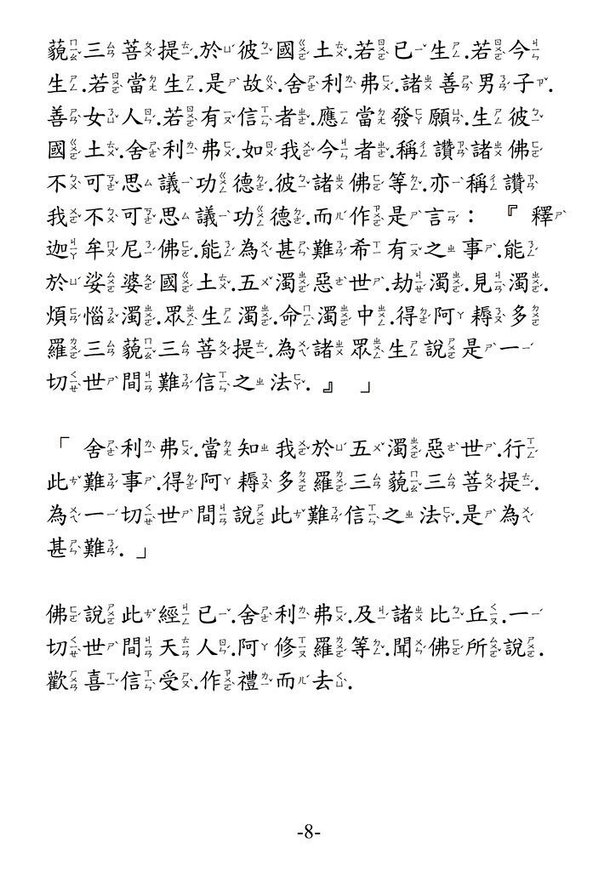 藐三菩提.於彼國土.若已生.若今
生.若當生.是故.舍利弗.諸善男子.
善女人.若有信者.應當發願.生彼
國土.舍利弗.如我今者.稱讚諸佛
不可思議功德.彼諸佛等.亦稱讚
我不可思議功德.而作是言:『釋
迦牟尼佛.能為甚難希有之事.能
於娑婆國土.五濁惡世.劫濁.見濁.
煩惱濁.眾生濁.命濁中.得阿耨多
羅三藐三菩提.為諸眾生說是一
切世間難信之法.』」
「舍利弗.當知我於五濁惡世.行
此難事.得阿耨多羅三藐三菩提.
為一切世間說此難信之法.是為
甚難.」
佛說此經已.舍利弗.及諸比丘.一
切世間天人.阿修羅等.聞佛所說.
歡喜信受.作禮而去.
-8-